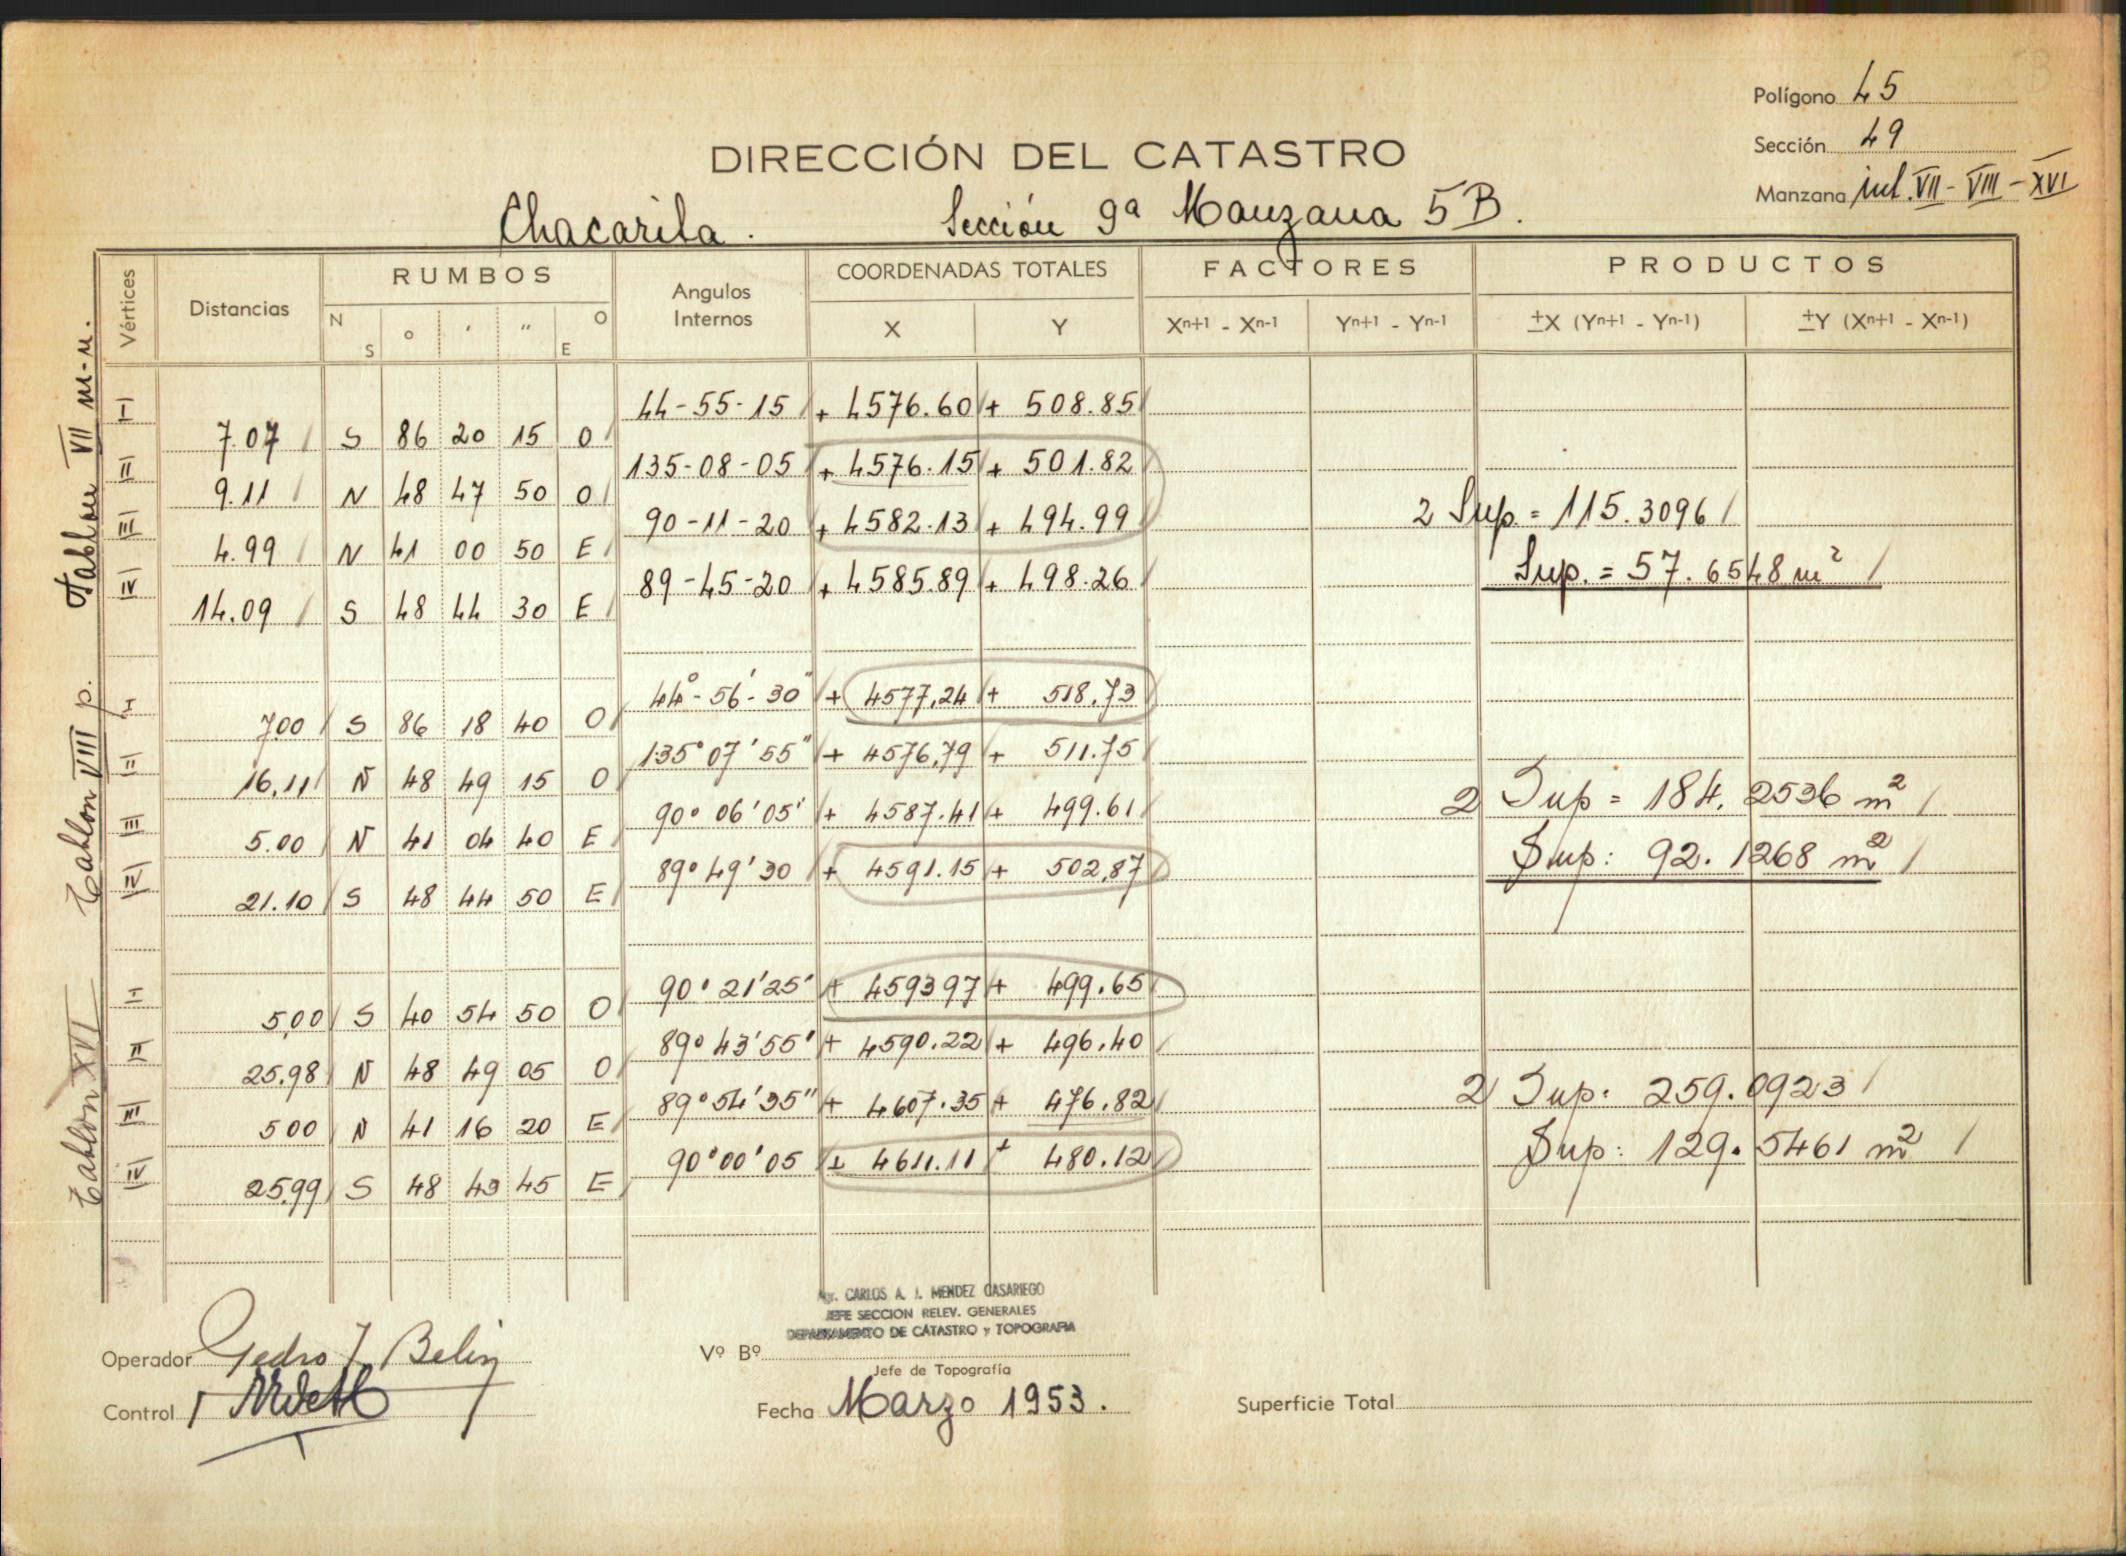 Polígono 45
Sección 49
Manzana int. VII - VIII - XVI
DIRECCIÓN DEL CATASTRO
Chacarita. Sección 9ª Manzana 5B.
Vértices Distancias RUMBOS Angulos Internos COORDENADAS TOTALES FACTORES PRODUCTOS
N S ° ' " O E X Y Xn+1 - Xn-1 Yn+1 - Yn-1 ±X (Yn+1 - Yn-1) ±Y (Xn+1 - Xn-1)
Tablon VII m-n.
I 44-55-15 + 4576.60 + 508.85
7.07 S 86 20 15 O
II 135-08-05 + 4576.15 + 501.82
9.11 N 48 47 50 O
III 90-11-20 + 4582.13 + 494.99 2 Sup. = 115.3096
4.99 N 41 00 50 E
IV 89-45-20 + 4585.89 + 498.26 Sup. = 57.6548 m²
14.09 S 48 44 30 E
Tablon VIII p.
I 44°-56'-30" + 4577,24 + 518,73
7.00 S 86 18 40 O
II 135°07'55" + 4576,79 + 511.75
16,11 N 48 49 15 O
III 90° 06'05' + 4587.41 + 499.61 2 Sup = 184.2536 m²
5.00 N 41 04 40 E
IV 89°49'30 + 4591.15 + 502,87 Sup: 92.1268 m²
21.10 S 48 44 50 E
Tablon XVI
I 90°21'25' + 459397 + 499.65
5,00 S 40 54 50 O
II 89°43'55' + 4590.22 + 496.40
25,98 N 48 49 05 O
III 89°54'35" + 4607.35 + 476.82 2 Sup: 259.0923
500 N 41 16 20 E
IV 90°00'05 + 4611.11 + 480.12 Sup: 129.5461 m²
25,99 S 48 43 45 E
Agr. CARLOS A. J. MENDEZ CASARIEGO
JEFE SECCION RELEV. GENERALES
DEPARTAMENTO DE CATASTRO y TOPOGRAFIA
Operador Pedro J Belin
Vº Bº
Jefe de Topografía
Control
Fecha Marzo 1953.
Superficie Total